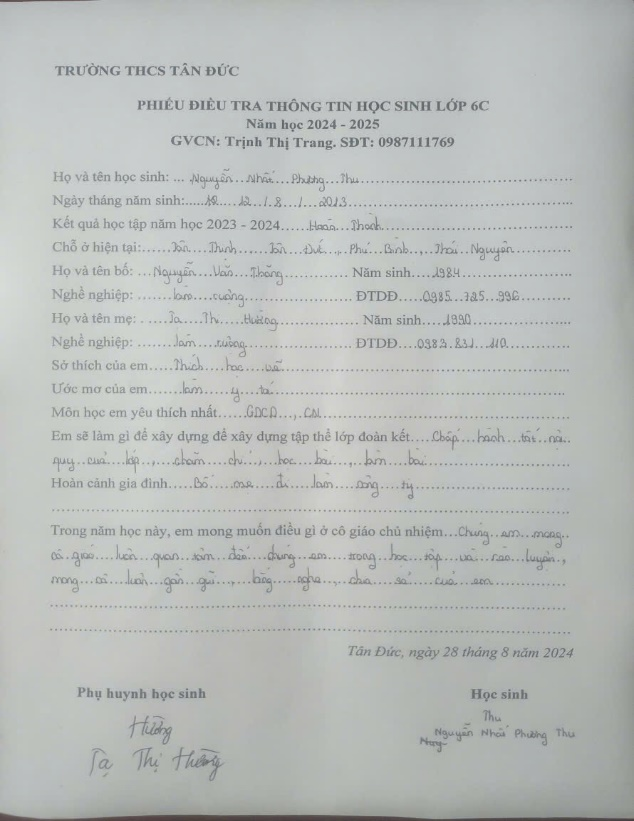 TRƯỜNG THCS TÂN ĐỨC
PHIẾU ĐIỀU TRA THÔNG TIN HỌC SINH LỚP 6C
Năm học 2024 - 2025
GVCN: Trịnh Thị Trang. SĐT: 0987111769
Họ và tên học sinh: ... Nguyễn Nhái Phương Thu
Ngày tháng năm sinh: 12 / 8 / 2013
Kết quả học tập năm học 2023 - 2024 Hoàn Thành
Chỗ ở hiện tại: Tân Thịnh Tân Đức, Phú Bình, Thái Nguyên
Họ và tên bố: Nguyễn Văn Thăng Năm sinh 1984
Nghề nghiệp: làm ruộng ĐTDĐ 0985 725 996
Họ và tên mẹ: Tạ Thị Hường Năm sinh 1990
Nghề nghiệp: làm ruộng ĐTDĐ 0383.831 110
Sở thích của em Thích học vẽ
Ước mơ của em làm y tá
Môn học em yêu thích nhất GDCD, CN
Em sẽ làm gì để xây dựng để xây dựng tập thể lớp đoàn kết Chấp hành tốt nội
quy của lớp, chăm chỉ, học bài, làm bài
Hoàn cảnh gia đình Bố mẹ đi làm công ty
Trong năm học này, em mong muốn điều gì ở cô giáo chủ nhiệm Chúng em mong
cô giáo luôn quan tâm đến chúng em trong học tập và rèn luyện,
mong cô luôn gần gũi, lắng nghe, chia sẻ của em
Tân Đức, ngày 28 tháng 8 năm 2024
Phụ huynh học sinh Học sinh
Hường Thu
Tạ Thị Hường Nguyễn Nhái Phương Thu